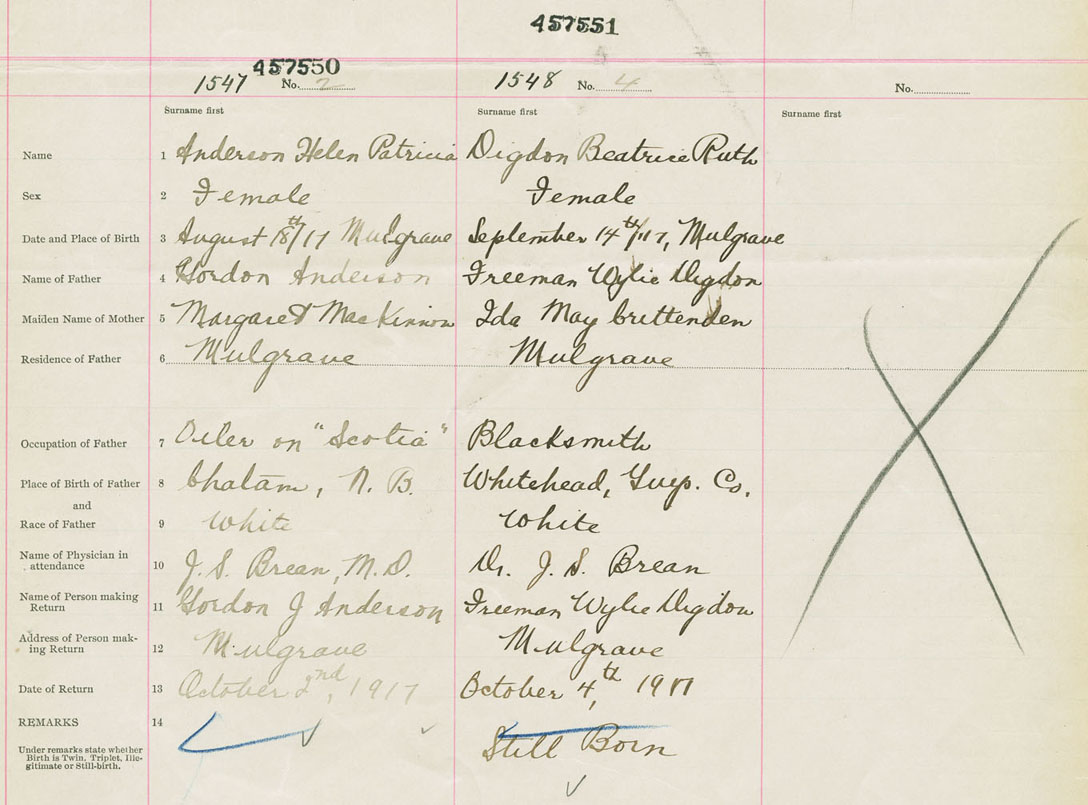 457551
457550
1547 No. 2 1548 No. 4 No.
Surname first Surname first Surname first
Name 1 Anderson Helen Patricia Digdon Beatrice Ruth
Sex 2 Female Female
Date and Place of Birth 3 August 18th/17 Mulgrave September 14th/17, Mulgrave
Name of Father 4 Gordon Anderson Freeman Wylie Digdon
Maiden Name of Mother 5 Margaret MacKinnon Ida May Crittenden
Residence of Father 6 Mulgrave Mulgrave
Occupation of Father 7 Oiler on "Scotia" Blacksmith
Place of Birth of Father 8 Chatam, N. B. Whitehead, Guys. Co.
and
Race of Father 9 White White
Name of Physician in
attendance 10 J. S. Brean, M.D. Dr. J. S. Brean
Name of Person making
Return 11 Gordon J Anderson Freeman Wylie Digdon
Address of Person mak-
ing Return 12 Mulgrave Mulgrave
Date of Return 13 October 2nd, 1917 October 4th, 1917
REMARKS 14
Under remarks state whether
Birth is Twin, Triplet, Ille-
gitimate or Still-birth.
Still Born